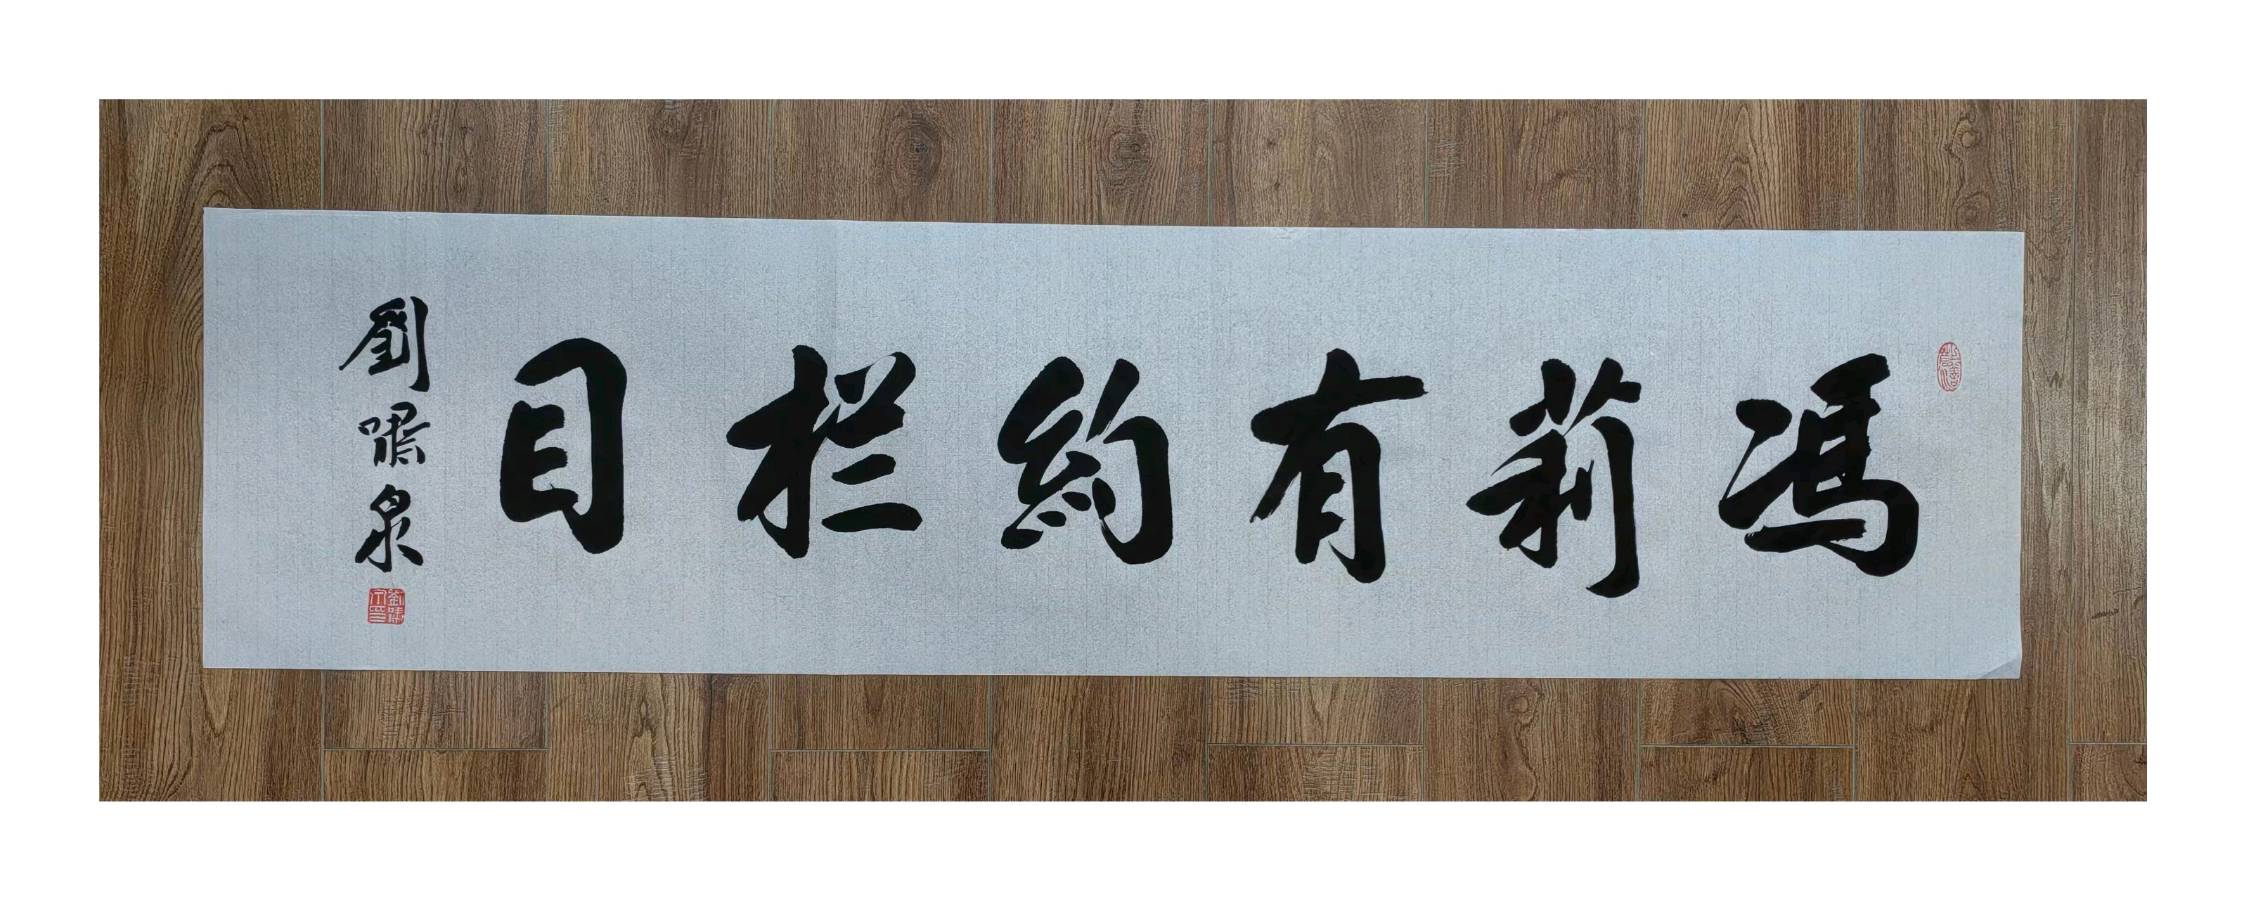 馮莉有約栏目
劉嘯泉